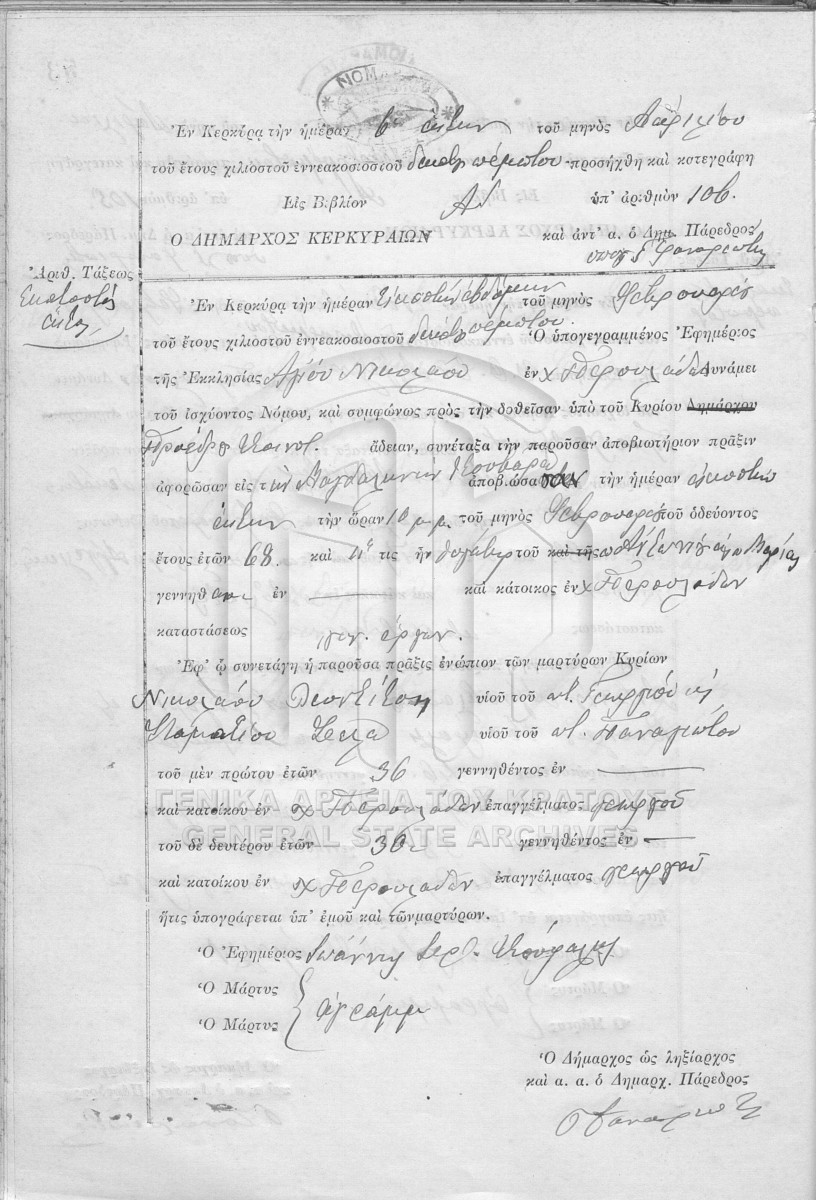 ΝΟΜΑ
Ἐν Κερκύρᾳ τὴν ἡμέραν 6 ἕκτην τοῦ μηνὸς Ἀπριλίου
τοῦ ἔτους χιλιοστοῦ ἐννεακοσιοστοῦ δεκάτου πέμπτου προσήχθη καὶ κατεγράφη
Εἰς Βιβλίον ΑΔ ὑπ' ἀριθμὸν 106.
Ο ΔΗΜΑΡΧΟΣ ΚΕΡΚΥΡΑΙΩΝ καὶ ἀντ' α. ὁ Δημ. Πάρεδρος
Ἀριθ. Τάξεως
Ἑκατοστὸς
ἕκτος
Ἐν Κερκύρᾳ τὴν ἡμέραν εἰκοστὴν ἑβδόμην τοῦ μηνὸς Φεβρουαρίου
τοῦ ἔτους χιλιοστοῦ ἐννεακοσιοστοῦ δεκάτου πέμπτου. Ὁ ὑπογεγραμμένος Ἐφημέριος
τῆς Ἐκκλησίας Ἁγίου Νικολάου ἐν χ Περουλάδων Δυνάμει
τοῦ ἰσχύοντος Νόμου, καὶ συμφώνως πρὸς τὴν δοθεῖσαν ὑπὸ τοῦ Κυρίου Δημάρχου
Προέδρου Κοινοτ. ἄδειαν, συνέταξα τὴν παροῦσαν ἀποβιωτήριον πρᾶξιν
ἀφορῶσαν εἰς τὴν Μαγδαληνὴν ἀποβιώσασαν τὴν ἡμέραν εἰκοστὴν
ἕκτην τὴν ὥραν 10 μ.μ. τοῦ μηνὸς Φεβρουαρίου τοῦ ὁδεύοντος
ἔτους ἐτῶν 68. καὶ ἥτις ἦν θυγάτηρ τοῦ καὶ τῆς Μαρίας
γεννηθ ἐν — καὶ κάτοικος ἐν χ Περουλάδων
καταστάσεως γεν. ἔργων.
Ἐφ' ᾧ συνετάγη ἡ παροῦσα πρᾶξις ἐνώπιον τῶν μαρτύρων Κυρίων
Νικολάου Λεοντίτση υἱοῦ τοῦ ποτ. Γεωργίου κ
Σταματίου υἱοῦ τοῦ ποτ. Παναγιώτου
τοῦ μὲν πρώτου ἐτῶν 36 γεννηθέντος ἐν —
ΓΕΝΙΚΑ ΑΡΧΕΙΑ ΤΟΥ ΚΡΑΤΟΥΣ
καὶ κατοίκου ἐν χ Περουλάδων ἐπαγγέλματος γεωργοῦ
GENERAL STATE ARCHIVES
τοῦ δὲ δευτέρου ἐτῶν 36 γεννηθέντος ἐν —
καὶ κατοίκου ἐν χ Περουλάδων ἐπαγγέλματος γεωργοῦ
ἥτις ὑπογράφεται ὑπ' ἐμοῦ καὶ τῶν μαρτύρων.
Ὁ Ἐφημέριος Ἰωάννης Ἱερ.
Ὁ Μάρτυς
Ἀγράμμ
Ὁ Μάρτυς
Ὁ Δήμαρχος ὡς ληξίαρχος
καὶ α. α. ὁ Δημαρχ. Πάρεδρος